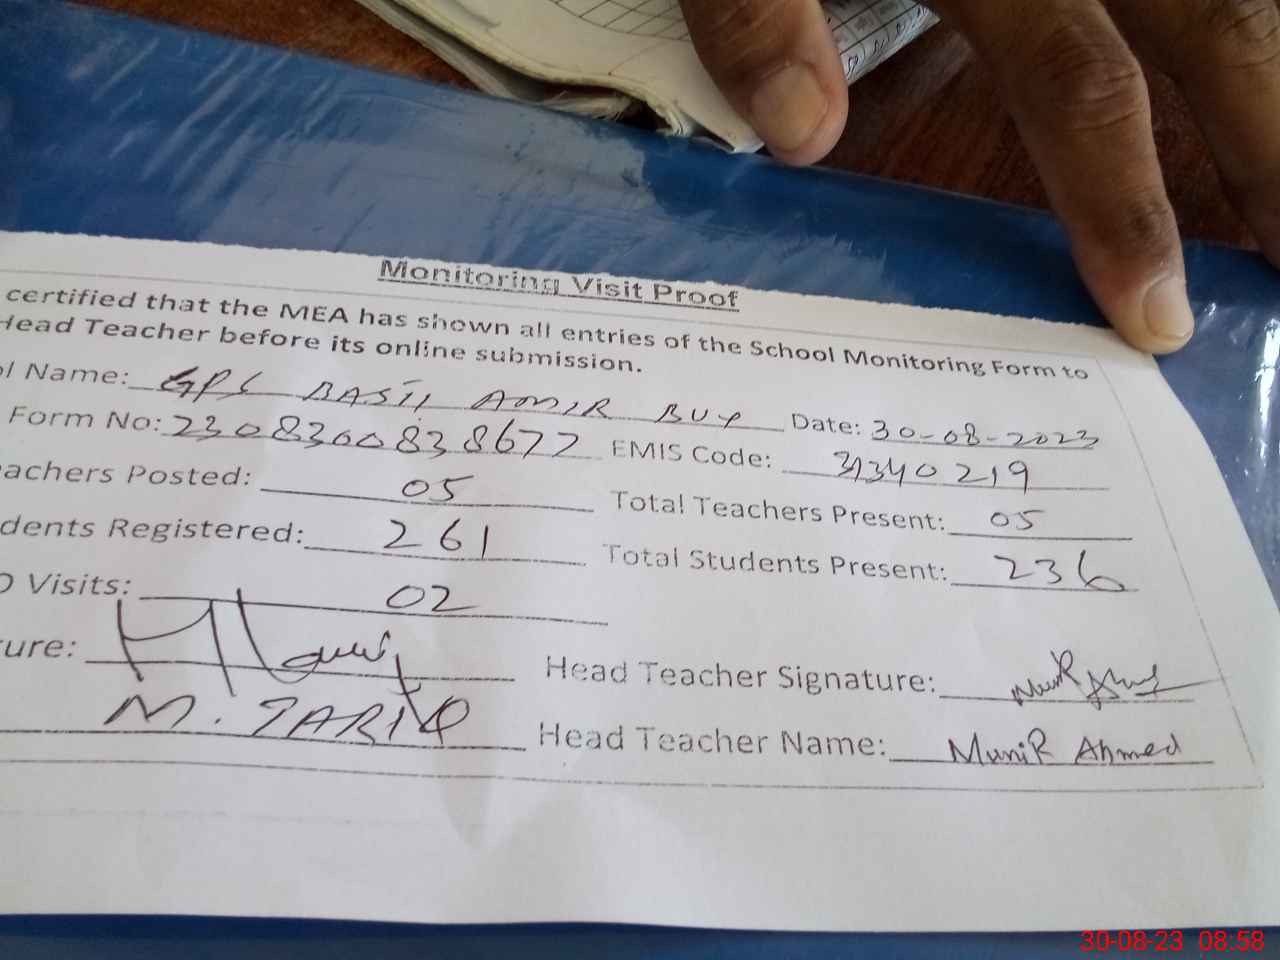 Monitoring Visit Proof
certified that the MEA has shown all entries of the School Monitoring Form to
Head Teacher before its online submission.
l Name: GPS BASTI AMIR BUX Date: 30-08-2023
Form No: 2308300838677 EMIS Code: 31340219
achers Posted: 05 Total Teachers Present: 05
dents Registered: 261 Total Students Present: 236
O Visits: 02
ure: Head Teacher Signature:
M. TARIQ Head Teacher Name: MuniR Ahmed
30-08-23 08:58